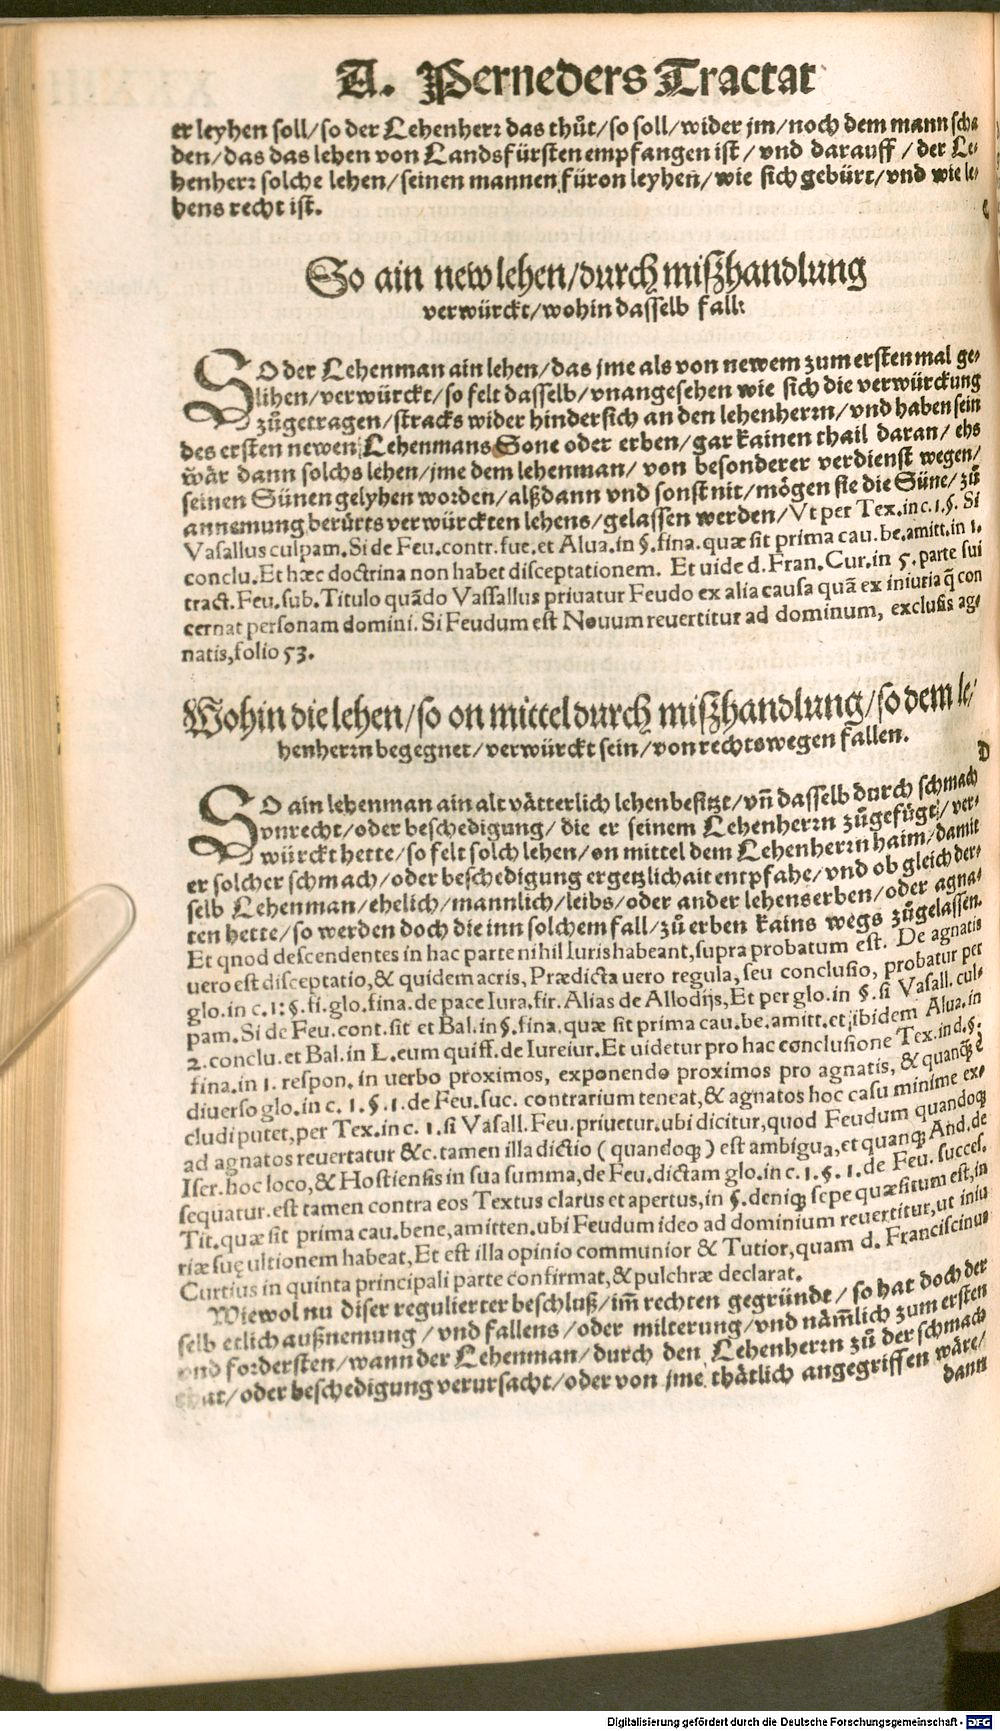 A. Perneders Tractat
er leyhen soll/so der Lehenherr das thůt/so soll/wider jm/noch dem mann scha
den/das das lehen von Landsfürsten empfangen ist/vnd darauff/der Le-
henherr solche lehen/seinen mannen füron leyhen/wie sich gebürt/vnd wie le-
hens recht ist.
C
So ain new lehen/durch mißhandlung
verwürckt/wohin dasselb fall:
SO der Lehenman ain lehen/das jme als von newem zum ersten mal ge-
lihen/verwürckt/so felt dasselb/vnangesehen wie sich die verwürckung
zůgetragen/stracks wider hindersich an den lehenherrn/vnd haben sein
des ersten newen Lehenmans Sone oder erben/gar kainen thail daran/ehs
wår dann solchs lehen/jme dem lehenman/von besonderer verdienst wegen/
seinen Sünen gelyhen worden/alßdann vnd sonst nit/mögen sie die Süne/zů
annemung berůrts verwürckten lehens/gelassen werden/Vt per Tex.in c.1.§. Si
Vasallus culpam. Si de Feu.contr.fue.et Alua.in §.fina.quæ sit prima cau.be.amitt.in 1.
conclu.Et hæc doctrina non habet disceptationem. Et uide d.Fran.Cur.in 5.parte sui
tract.Feu.sub.Titulo quãdo Vassallus priuatur Feudo ex alia causa quã ex iniuria q̃ con
cernat personam domini.Si Feudum est Nouum reuertitur ad dominum, exclusis ag-
natis,folio 53.
Wohin die lehen/so on mittel durch mißhandlung/so dem le-
henherrn begegnet/verwürckt sein/von rechts wegen fallen.
D
SO ain lehenman ain alt våtterlich lehen besitzt/vñ dasselb durch schmach
vnrecht/oder beschedigung/die er seinem Lehenherrn zůgefügt/ver-
würckt hette/so felt solch lehen/on mittel dem Lehenherrn haim/damit
er solcher schmach/oder beschedigung ergetzlichait entpfahe/vnd ob gleich der-
selb Lehenman/ehelich/mannlich/leibs/oder ander lehenserben/oder agna-
ten hette/so werden doch die inn solchem fall/zů erben kains wegs zůgelassen.
Et qnod descendentes in hac parte nihil Iuris habeant,supra probatum est. De agnatis
uero est disceptatio,& quidem acris, Prædicta uero regula, seu conclusio, probatur per
glo.in c.1:§.si.glo.fina.de pace Iura.fir.Alias de Allodijs,Et per glo.in §.si Vasall.cul-
pam.Si de Feu.cont.sit et Bal.in §.fina.quæ sit prima cau.be.amitt.et ibidem Alua.in
2.conclu.et Bal.in L.eum quiff.de Iureiur.Et uidetur pro hac conclusione Tex.in d.§.
fina.in 1. respon. in uerbo proximos, exponendo proximos pro agnatis, & quanq̃ è
diuerso glo.in c. 1. §. 1. de Feu.suc. contrarium teneat,& agnatos hoc casu minime ex-
cludi putet,per Tex.in c. 1. si Vasall. Feu.priuetur.ubi dicitur,quod Feudum quandoq;
ad agnatos reuertatur &c.tamen illa dictio ( quandoq; ) est ambigua,et quanq; And.de
Iser.hoc loco,& Hostiensis in sua summa,de Feu.dictam glo.in c.1.§. 1.de Feu. succes.
sequatur.est tamen contra eos Textus clarus et apertus,in §.deniq; sepe quæsitum est,in
Tit.quæ sit prima cau.bene,amitten.ubi Feudum ideo ad dominium reuertitur,ut iniu
riæ suę ultionem habeat,Et est illa opinio communior & Tutior,quam d. Franciscinus
Curtius in quinta principali parte confirmat,& pulchræ declarat.
Wiewol nu diser regulierter beschluß/im̃ rechten gegründt/so hat doch der
selb etlich außnemung/vnd fallens/oder milterung/vnd näm̃lich zum ersten
vnd fordersten/wann der Lehenman/durch den Lehenherrn zů der schmach
that/oder beschedigung verursacht/oder von jme thåtlich angegriffen wåre/
dann
Digitalisierung gefördert durch die Deutsche Forschungsgemeinschaft - DFG